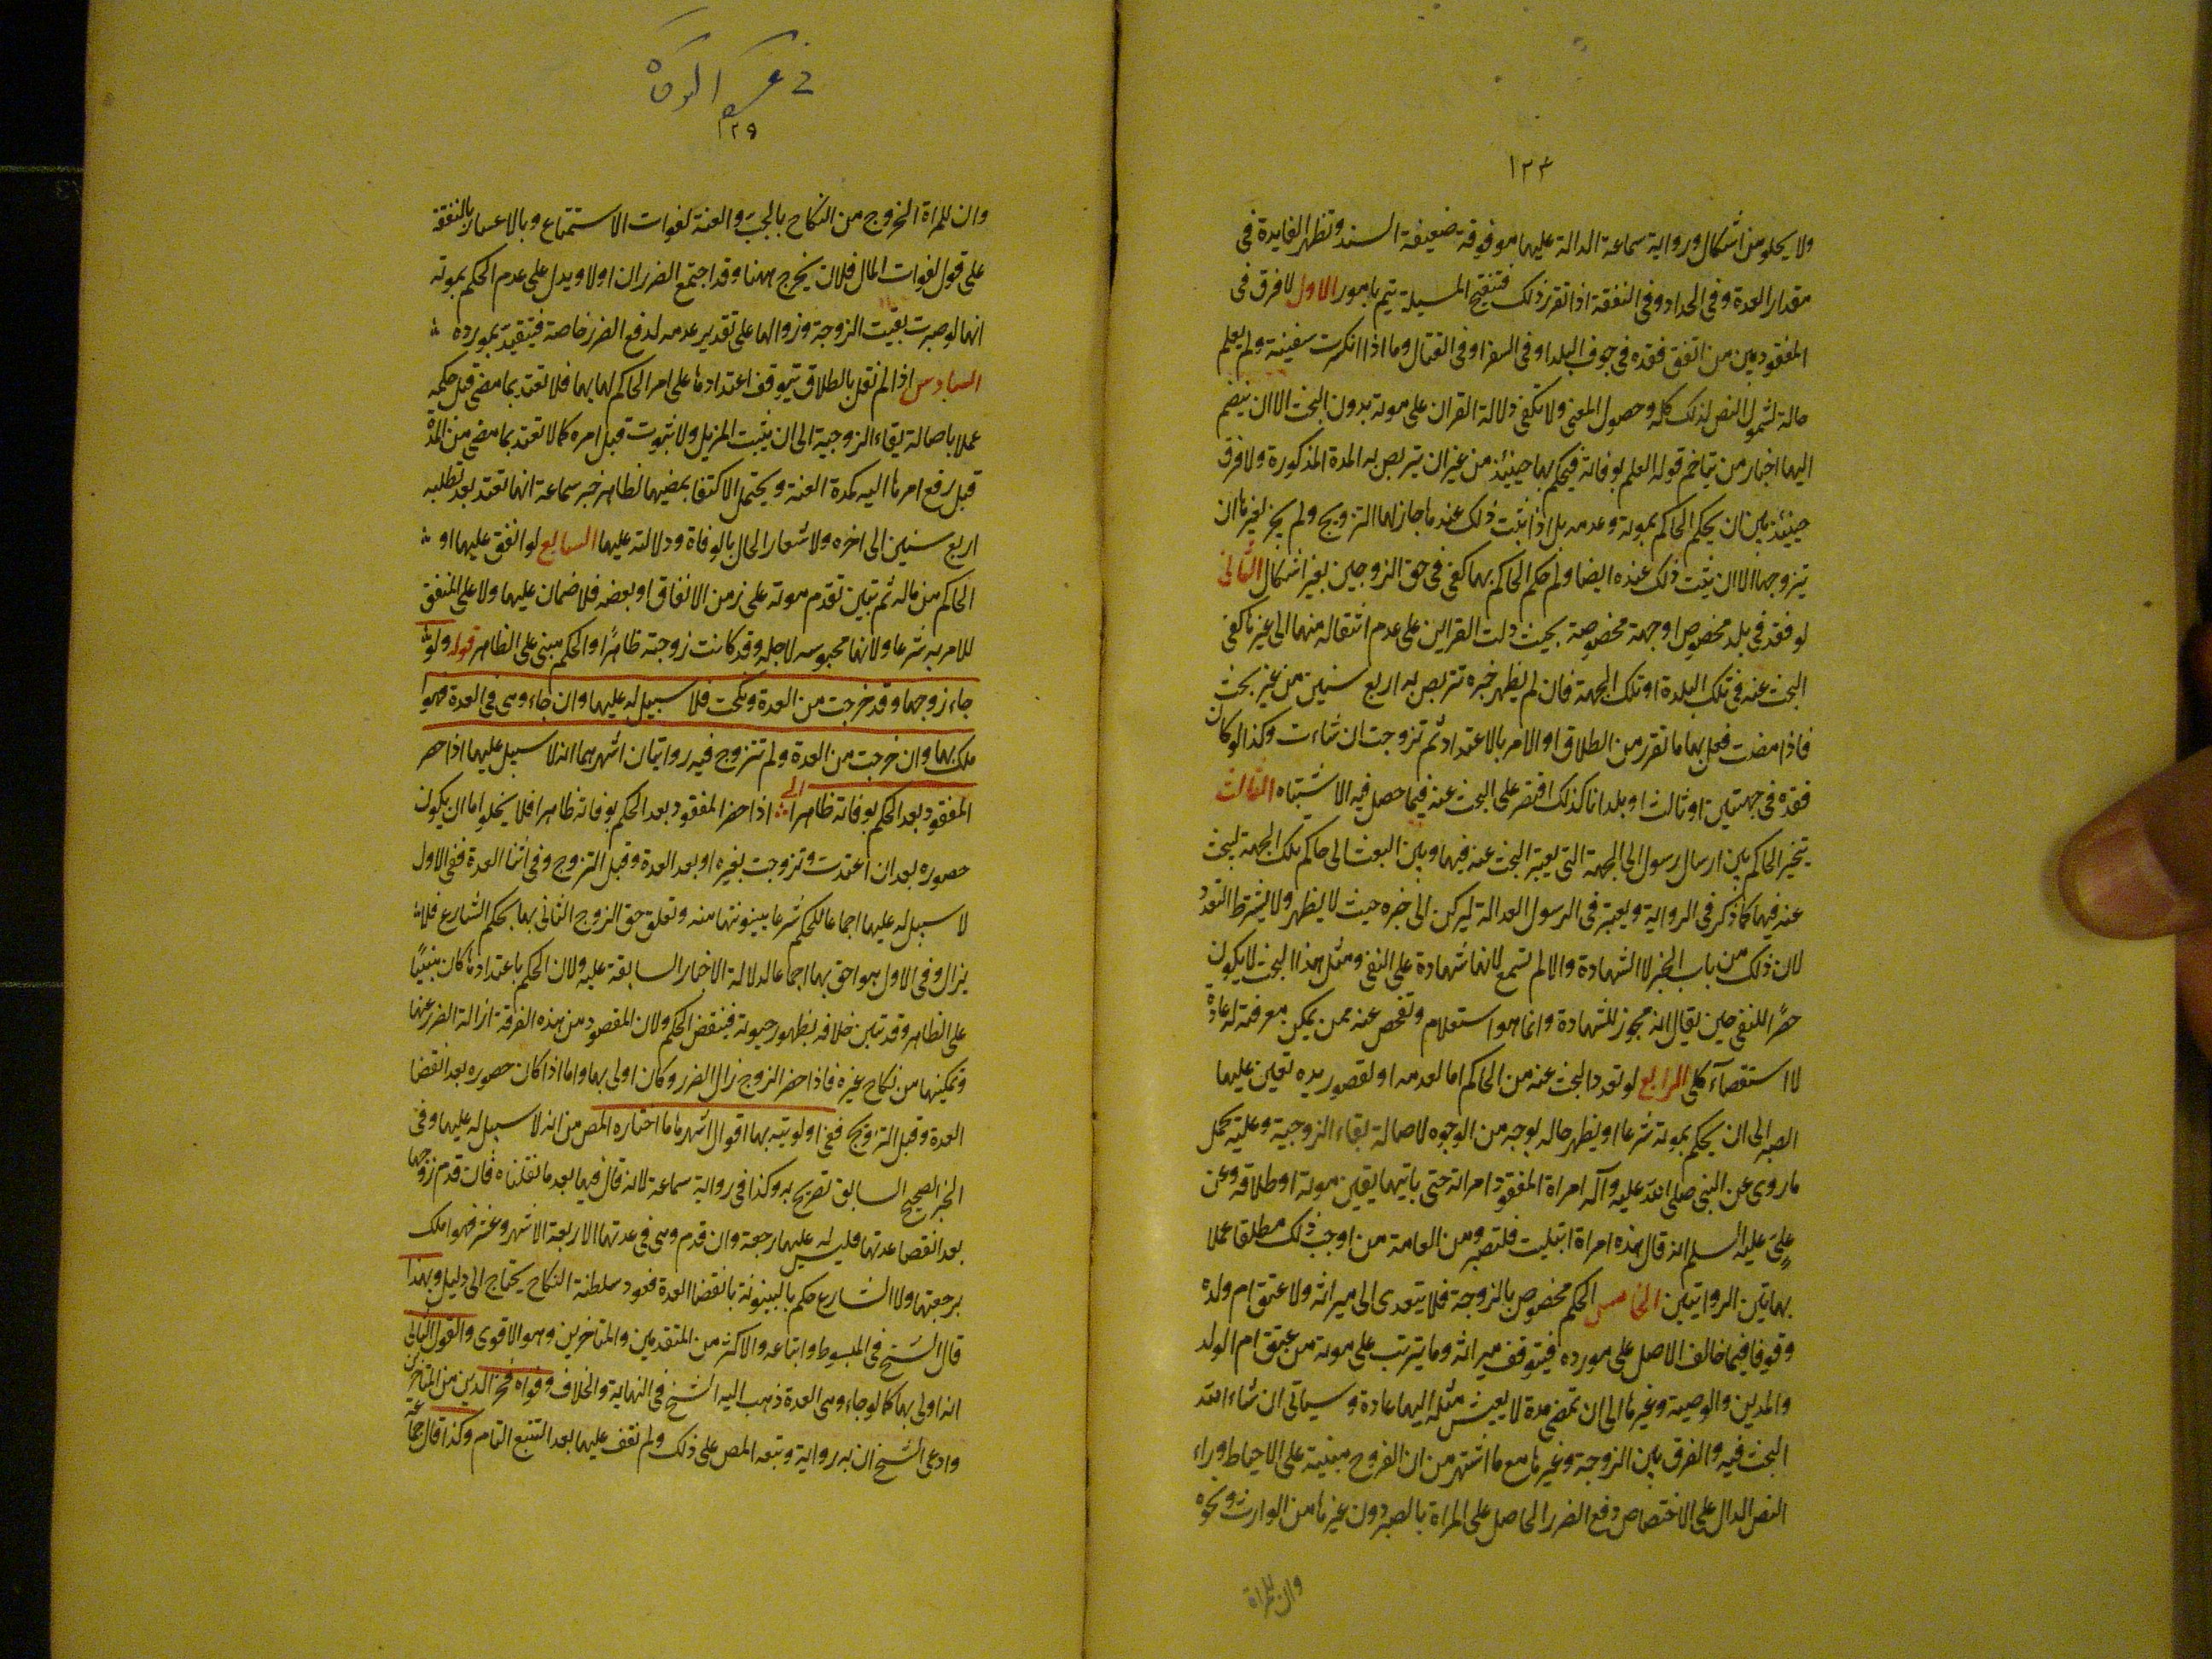 ١٣٣
ولا يخلو من اشكال ورواية سماعة الدالة عليها موقوفة ضعيفة السند وتظهر الفايدة في
مقدار العدة وفي الحداد وفي النفقة اذا تقرر ذلك فتنقيح المسيلة يتم بامور الاول لا فرق في
المفقود بين من اتفق فقده في جوف البلد او في السفر او في القتال وما اذا انكسرت سفينة ولم يعلم
حاله لشمول النص لذلك كله وحصول المعنى ولا تكفي دلالة القران على موته بدون البحث الا ان ينضم
اليها اخبار من يتاخم قوله العلم بوفاته فيحكم بها حينئذ من غير ان يتربص به المدة المذكورة ولا فرق
حينئذ بين ان يحكم الحاكم بموته وعدمه بل اذا ثبت ذلك عندها جاز لها التزويج ولم يجز لغيرها ان
يتزوجها الا ان يثبت ذلك عنده ايضا ولو حكم الحاكم بها كفى في حق الزوجين بغير اشكال الثانى
لو فقد في بلد مخصوص او جهة مخصوصة بحيث دلت القراين على عدم انتقاله منهما الى غيرها كفى
البحث عنه في تلك البلدة او تلك الجهة فان لم يظهر خبره تتربص به اربع سنين من غير بحث
فاذا مضت فعل بها ما تقرر من الطلاق او الامر بالاعتداد ثم تزوجت ان شاءت وكذا لو كان
فقده في جهتين او ثالث او بلدانا كذلك اقتصر على البحث عنه فيما حصل فيه الاشتباه الثالث
يتخير الحاكم بين ارسال رسول الى الجهة التي يعتبر البحث عنه فيها وبين البعث الى حاكم تلك الجهة ليبحث
عنه فيها كما ذكر في الرواية ويعتبر في الرسول العدالة ليركن الى خبره حيث لا يظهر ولا يشترط التعدد
لان ذلك من باب الخبر لا الشهادة والا لم تسمع لانها شهادة على النفي ومثل هذا البحث لا يكون
حصرا للنفي حين يقال انه مجوز للشهادة وانما هو استعلام وتفحص عنه ممن يمكن معرفته له عادة
لا استقصآء كلى الرابع لو تعذر البحث عنه من الحاكم اما لعدمه او لقصور يده تعين عليها
الصبر الى ان يحكم بموته شرعا او يظهر حاله بوجه من الوجوه لاصالة بقاء الزوجية وعليه يحمل
ما روى عن النبي صلى الله عليه وآله امراة المفقود امراته حتى ياتيها يقين موته او طلاقه وعن
علي عليه السلم انه قال هذه امراة ابتليت فلتصبر ومن العامة من اوجب ذلك مطلقا عملا
بهاتين الروايتين الخامس الحكم مخصوص بالزوجة فلا يتعدى الى ميراثه ولا عتق ام ولده
وقوفا فيما خالف الاصل على مورده فيتوقف ميراثه وما يترتب على موته من عتق ام الولد
والمدبر والوصية وغيرها الى ان تمضي مدة لا يعيش مثله اليها عادة وسياتي ان شاء الله
البحث فيه والفرق بين الزوجة وغيرها مع ما اشتهر من ان الفروج مبنية على الاحتياط وراء
النص الدال على الاختصاص دفع الضرر الحاصل على المراة بالصبر دون غيرها من الوارث ونحوه
وان للمراة
١٢٩
وان للمراة الخروج من النكاح بالجب والعنة لفوات الاستمتاع وبالاعسار بالنفقة
على قول لفوات المال فلان يخرج ههنا وقد اجتمع الضرران اولى ويدل على عدم الحكم بموته
انها لو صبرت بقيت الزوجة وزوالها على تقدير عدمه لدفع الضرر خاصة فيتقيد بمورده
السادس اذا لم نقل بالطلاق يتوقف اعتدادها على امر الحاكم لها بها فلا تعتد بما مضى قبل حكمه
عملا باصالة بقاء الزوجية الى ان يثبت المزيل ولا ثبوت قبل امره كما لا تعتد بما مضى من المدة
قبل رفع امرها اليه كمدة العنة ويحتمل الاكتفا بمضيها لظاهر خبر سماعة انها تعتد بعد تطلبه
اربع سنين الى اخره ولاشعار الحال بالوفاة ودلالته عليها السابع لو انفق عليها او
الحاكم من ماله ثم تبين تقدم موته على زمن الانفاق او بعضه فلا ضمان عليها ولا على المنفق
للامر به شرعا ولانها محبوسه لاجله وقد كانت زوجته ظاهرا والحكم مبنى على الظاهر قوله ولو
جاء زوجها وقد خرجت من العدة ونكحت فلا سبيل له عليها وان جاء وهي في العدة فهو
املك بها وان خرجت من العدة ولم تتزوج فيه روايتان اشهرهما انه لا سبيل عليها اذا حضر
المفقود بعد الحكم بوفاته ظاهرا الى اذا حضر المفقود بعد الحكم بوفاته ظاهرا فلا يخلو اما ان يكون
حضوره بعد ان اعتدت وتزوجت بغيره او بعد العدة وقبل التزوج وفي اثنا العدة ففي الاول
لا سبيل له عليها اجماعا للحكم شرعا ببينونتها منه وتعلق حق الزوج الثانى بها بحكم الشارع فلا
يزال وفي الاول هو احق بها اجماعا لدلالة الاخبار السابقة عليه ولان الحكم باعتدادها كان مبنيا
على الظاهر وقد تبين خلافه بظهور حيوته فينقض الحكم ولان المقصود من هذه الفرقة ازالة الضرر عنها
وتمكينها من نكاح غيره فاذا حضر الزوج زال الضرر وكان اولى بها واما اذا كان حضوره بعد انقضا
العدة وقبل التزويج ففي اولويته بها اقوال اشهرها ما اختاره المص من انه لا سبيل له عليها وفي
الخبر الصحيح السابق تصريح به وكذا في رواية سماعة لانه قال فيها بعد ما نقلناه فان قدم زوجها
بعد انقضا عدتها فليس له عليها رجعة وان قدم وهي في عدتها الاربعة الاشهر وعشر فهو املك
برجعتها ولان الشارع حكم بالبينونة بانقضا العدة فعود سلطنة النكاح يحتاج الى دليل وبهذا
قال الشيخ في المبسوط واتباعه والاكثر من المتقدمين والمتاخرين وهو الاقوى والقول الثانى
انه اولى بها كما لو جاء وهي العدة ذهب اليه الشيخ في النهاية والخلاف وقواه فخر الدين من المتاخرين
وادعى الشيخ ان به رواية وتبعه المص على ذلك ولم نقف عليها بعد التتبع التام وكذا قال جماعة